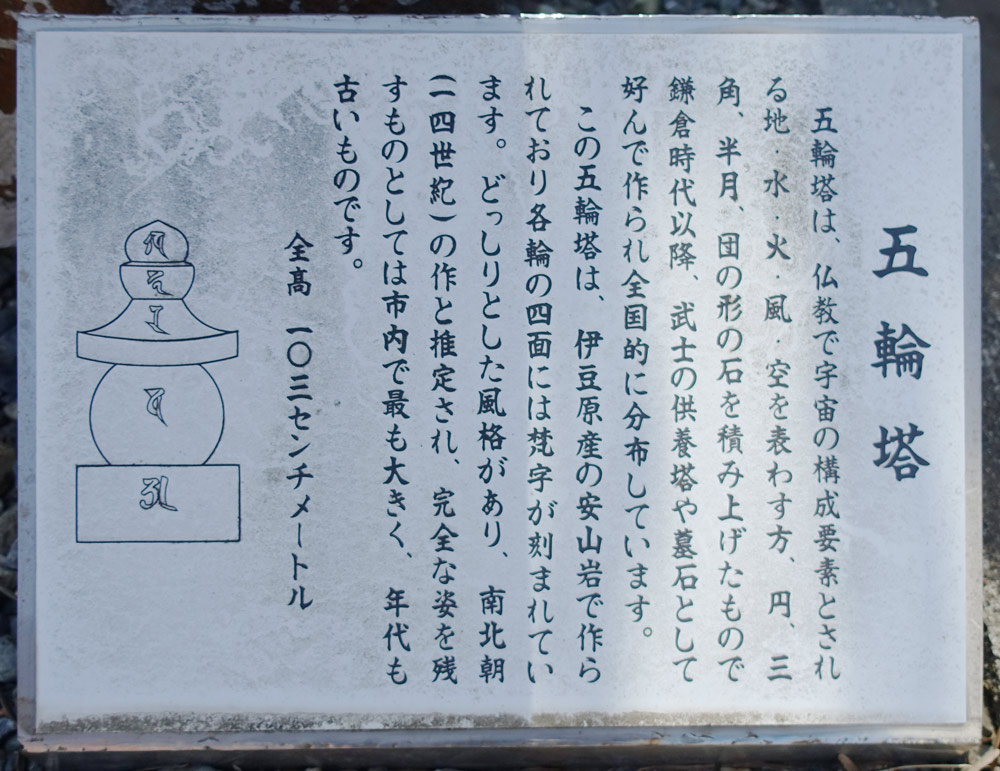 五輪塔
五輪塔は、仏教で宇宙の構成要素とされ
る地・水・火・風・空を表わす方、円、三
角、半月、団の形の石を積み上げたもので
鎌倉時代以降、武士の供養塔や墓石として
好んで作られ全国的に分布しています。
この五輪塔は、伊豆原産の安山岩で作ら
れており各輪の四面には梵字が刻まれてい
ます。どっしりとした風格があり、南北朝
(一四世紀)の作と推定され、完全な姿を残
すものとしては市内で最も大きく、年代も
古いものです。
全高 一〇三センチメートル